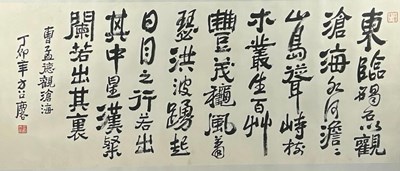 東臨碣石以觀
滄海水何澹〻
山島聳峙
木叢生百艸
豐茂穐風蕭
瑟洪波踴起
日月之行若出
其中星漢粲
爛若出其裏
曹孟德觀滄海
丁卯年